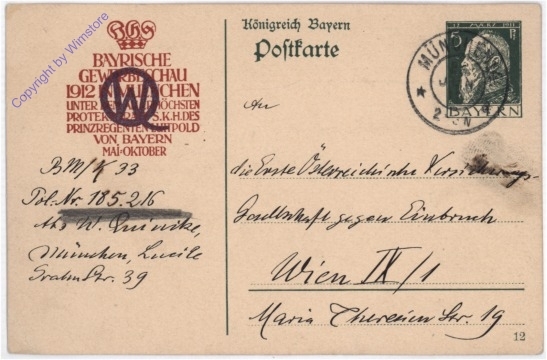 BAYRISCHE
GEWERBESCHAU
1912 IN MÜNCHEN
UNTER DEM ALLERHÖCHSTEN
PROTEKTORATE S.K.H. DES
PRINZREGENTEN LUITPOLD
VON BAYERN
MAI-OKTOBER
Königreich Bayern
Postkarte
5 Pf
BAYERN
MÜNCHEN
Copyright by Wimstore
W
BM/K 33
Pol.-Nr. 185.216
Abs W.
München, Lucile
Grahnstr. 39
An
die Erste Österreichische Versicherungs-
Gesellschaft gegen Einbruch
Wien IX/1
Maria Theresien Str. 19
12